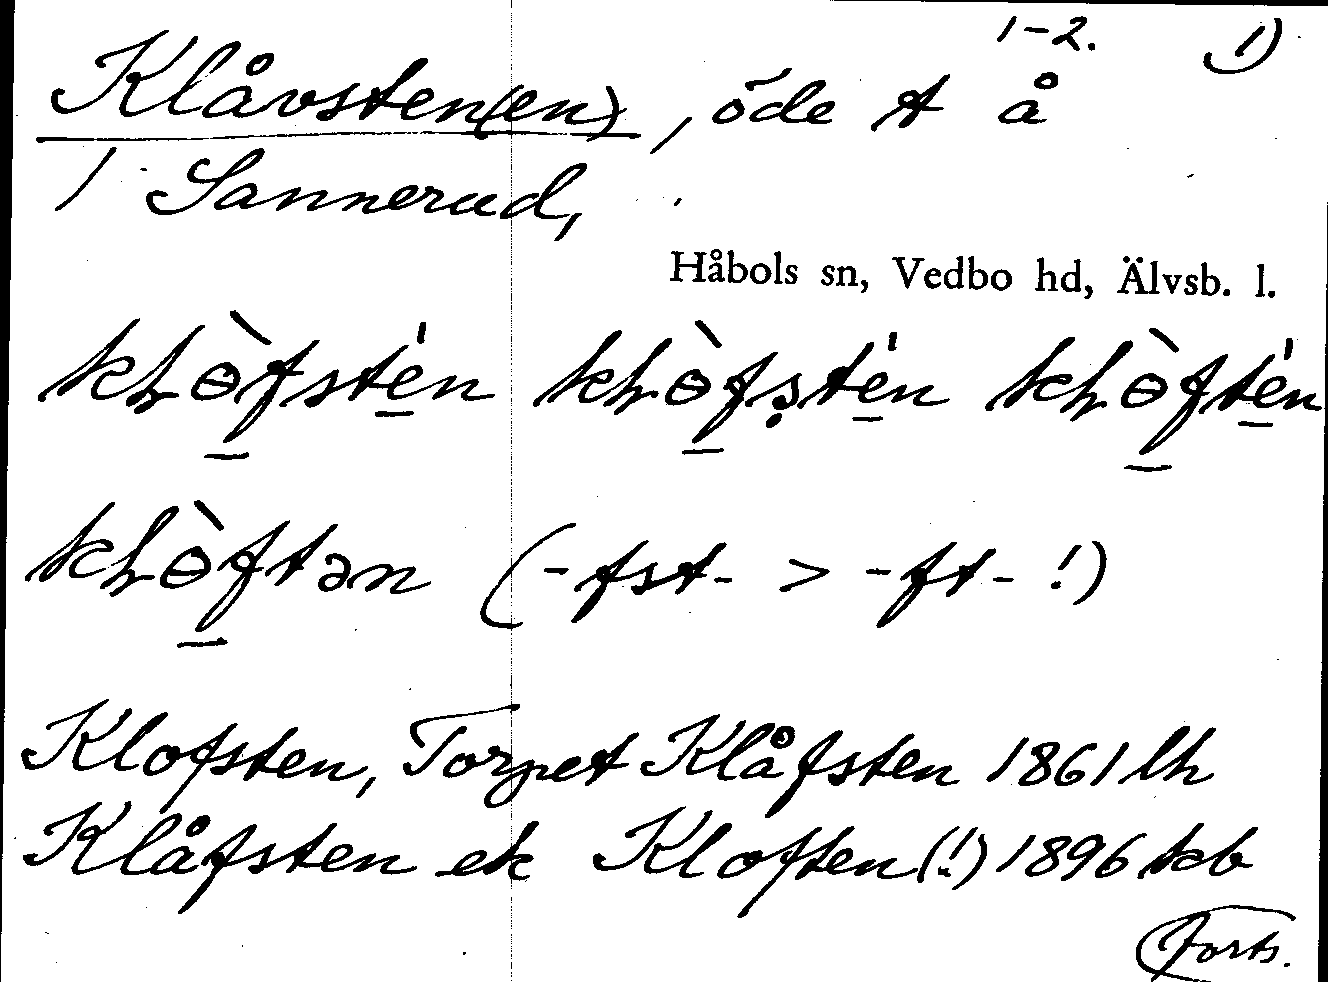 1-2. 1)
Klåvsten(en), öde t å
1 Sannerud,
Håbols sn, Vedbo hd, Älvsb. l.
kɽɵ̀fstén kɽɵ̀fsṭén kɽɵ̀ftén
kɽɵ̀ftən (-fst- > -ft- !)
Klofsten, Torpet Klåfsten 1861 lh
Klåfsten ek Kloften(!) 1896 kb
Forts.